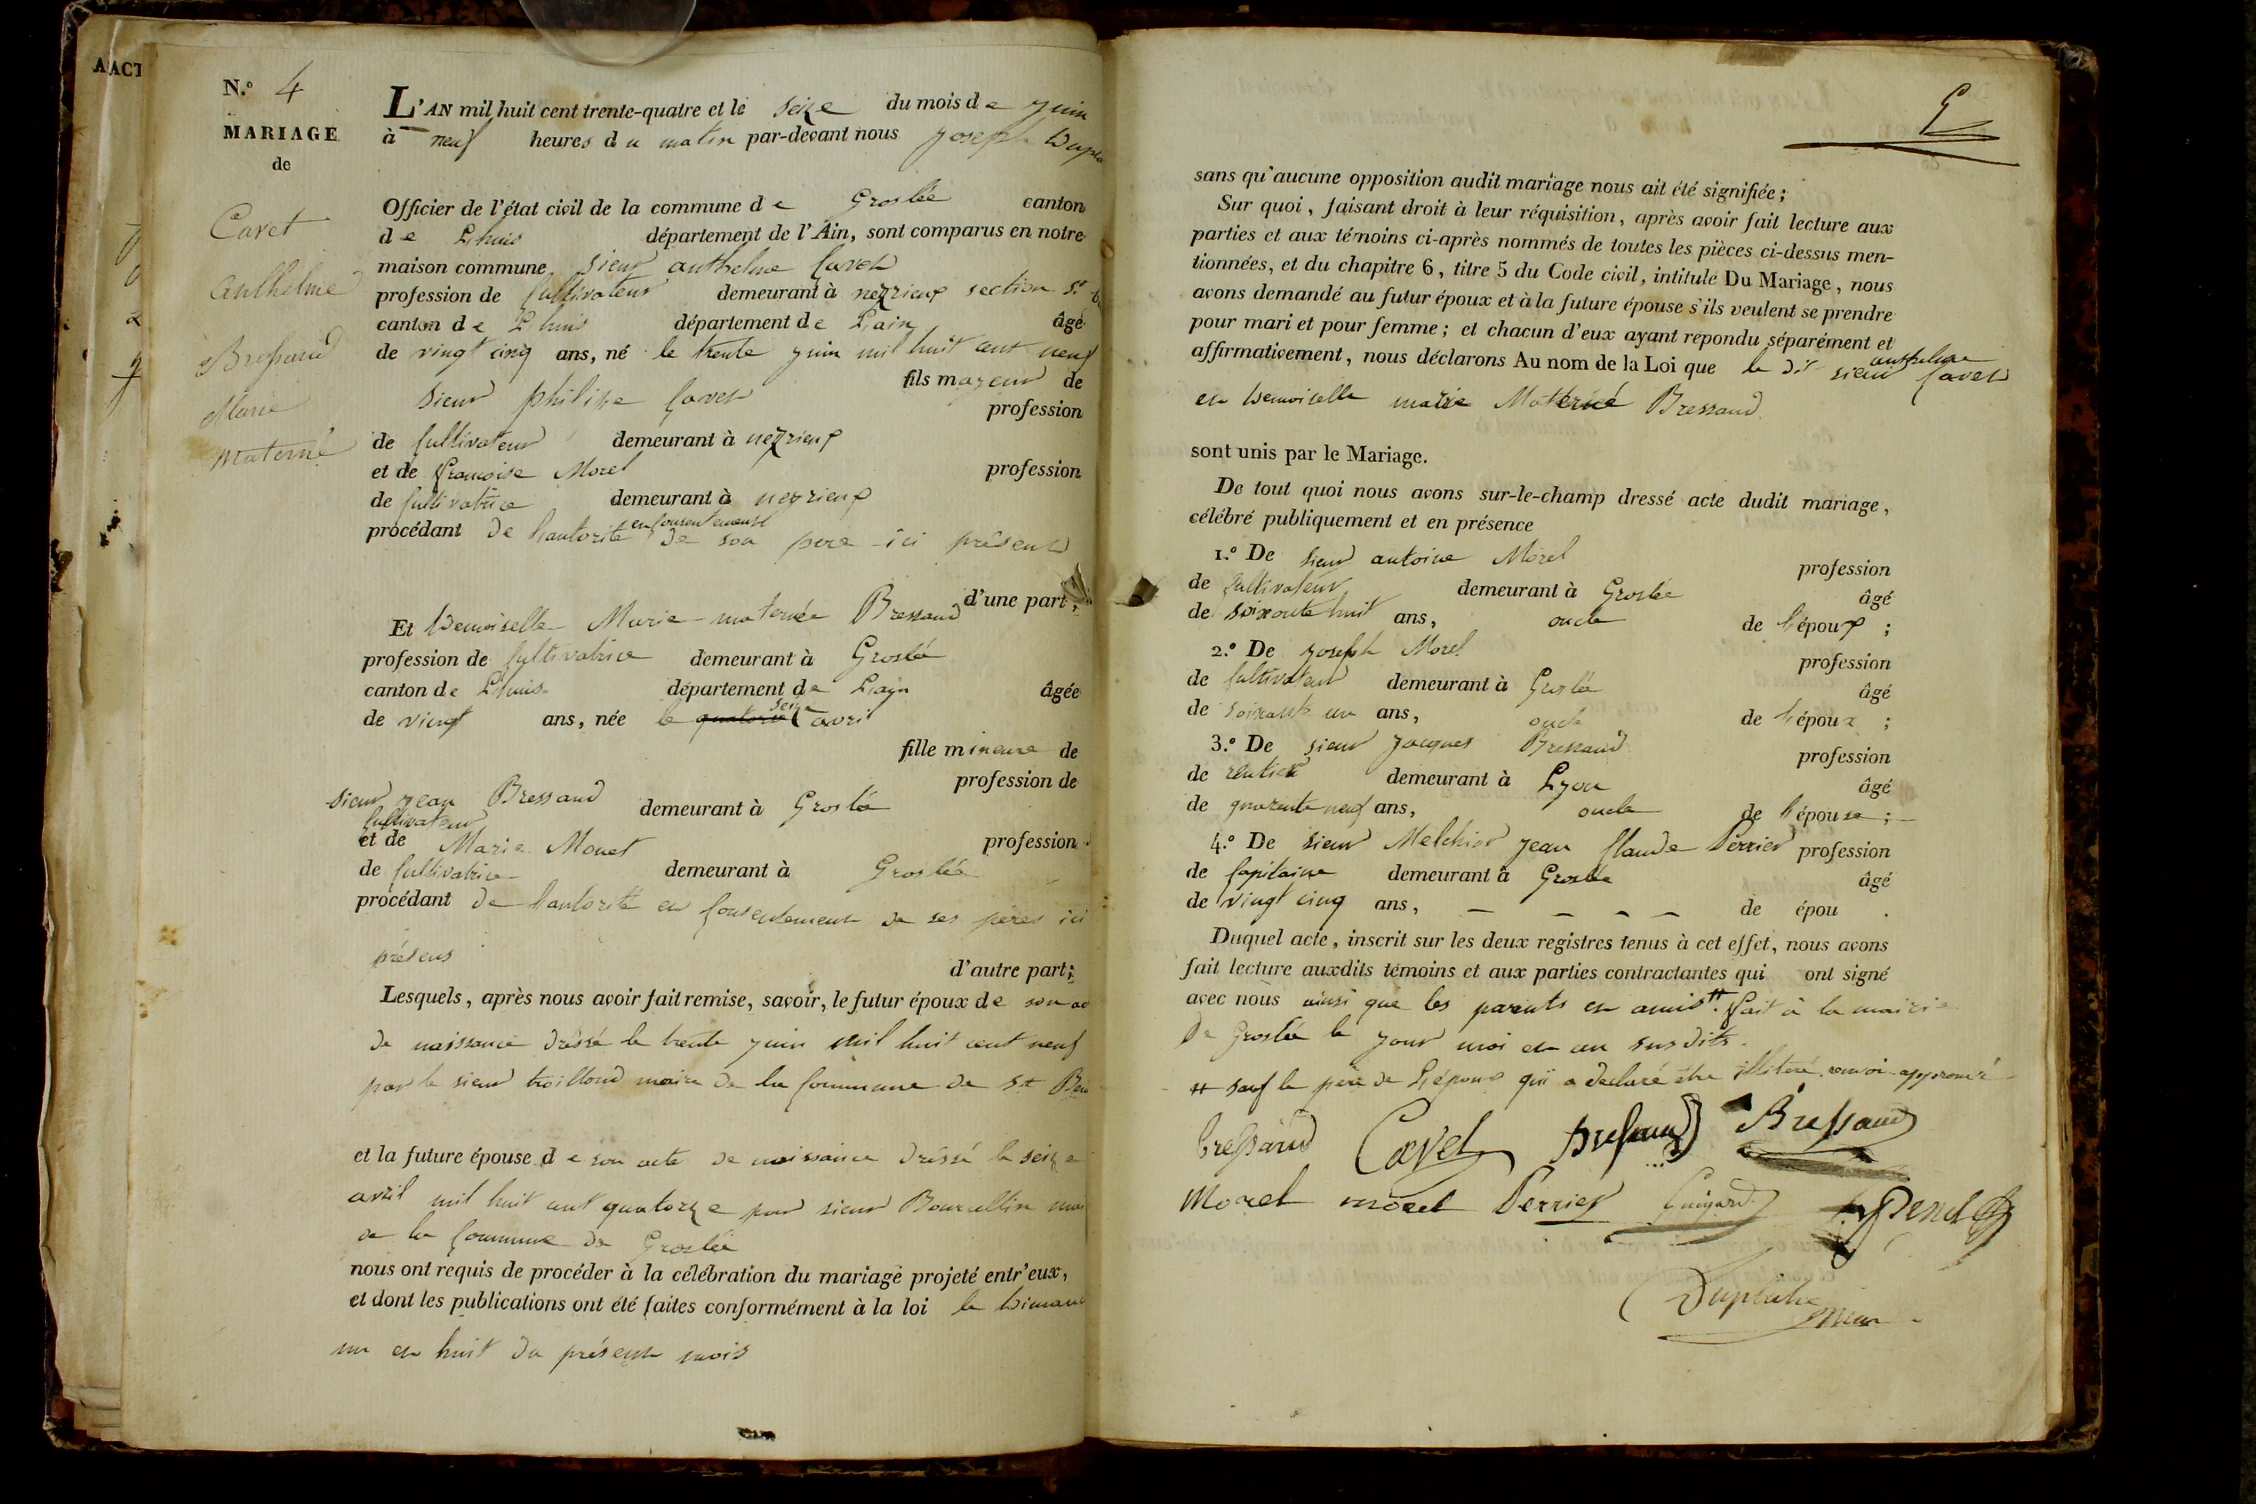 AACT
N.° 4
MARIAGE
de
Cavet
Anthelme
&
Bressand
Marie
Maternée
L'AN mil huit cent trente-quatre et le seize du mois de juin
à neuf heures du matin par-devant nous joseph
Officier de l'état civil de la commune de Groslée canton
de Lhuis département de l'Ain, sont comparus en notre
maison commune sieur anthelme Cavet
profession de Cultivateur demeurant à section St
canton de Lhuis département de Lain âgé
de vingt cinq ans, né le trente juin mil huit cent neuf
fils mageur de
sieur philipe Cavet
profession
de Cultivateur demeurant à
et de françoise Morel profession
de Cultivatrice demeurant à
procédant de lautorité en Consentement de son pere ici présent
d'une part;
Et Demoiselle Marie maternée Bressand
profession de Cultivatrice demeurant à Groslée
canton de Lhuis département de Layn âgée
de vingt ans, née le quatorze seize avril
fille mineure de
profession de
sieur jean Bressand demeurant à Groslée
Cultivateur
et de Marie Monet profession
de Cultivatrice demeurant à Groslée
procédant de lautorité en Consentement de ses pères ici
présens
d'autre part;
Lesquels, après nous avoir fait remise, savoir, le futur époux de son ac
de naissance dréssé le trente juin mil huit cent neuf
par le sieur maire de la Commune de St
et la future épouse de son acte de naissance dréssé le seize
avril mil huit cent quatorze par sieur Bourcellin mai
de la Commune de Groslée
nous ont requis de procéder à la célébration du mariage projeté entr'eux,
et dont les publications ont été faites conformément à la loi le Dimanc
un en huit du présent mois
sans qu'aucune opposition audit mariage nous ait été signifiée;
Sur quoi, faisant droit à leur réquisition, après avoir fait lecture aux
parties et aux témoins ci-après nommés de toutes les pièces ci-dessus men-
tionnées, et du chapitre 6, titre 5 du Code civil, intitulé Du Mariage, nous
avons demandé au futur époux et à la future épouse s'ils veulent se prendre
pour mari et pour femme; et chacun d'eux ayant repondu séparément et
affirmativement, nous déclarons Au nom de la Loi que le dit sieur anthelme Cavet
en Demoiselle marie Maternée Bressand
sont unis par le Mariage.
De tout quoi nous avons sur-le-champ dressé acte dudit mariage,
célébré publiquement et en présence
1.° De sieur antoine Morel profession
de Cultivateur demeurant à Groslée âgé
de soixante huit ans, oncle de l'époux ;
2.° De joseph Morel profession
de Cultivateur demeurant à Groslée âgé
de soixante un ans, oncle de l'époux ;
3.° De sieur jacques Bressand profession
de rentier demeurant à Lyon âgé
de quarante neuf ans, oncle de l'épouse ;
4.° De sieur Melchior jean Claude Perrier profession
de Capitaine demeurant à Groslée âgé
de vingt cinq ans, — — — — de épou .
Duquel acte, inscrit sur les deux registres tenus à cet effet, nous avons
fait lecture auxdits témoins et aux parties contractantes qui ont signé
avec nous ainsi que les parents en amis #. fait à la mairie
de Groslée le jour moi en an susdits.
# sauf le père de Lépoux qui a declaré être illiteré renvoi approuvé
bressand Cavet Bressand Bressand
Morel morel Perrier Guigard